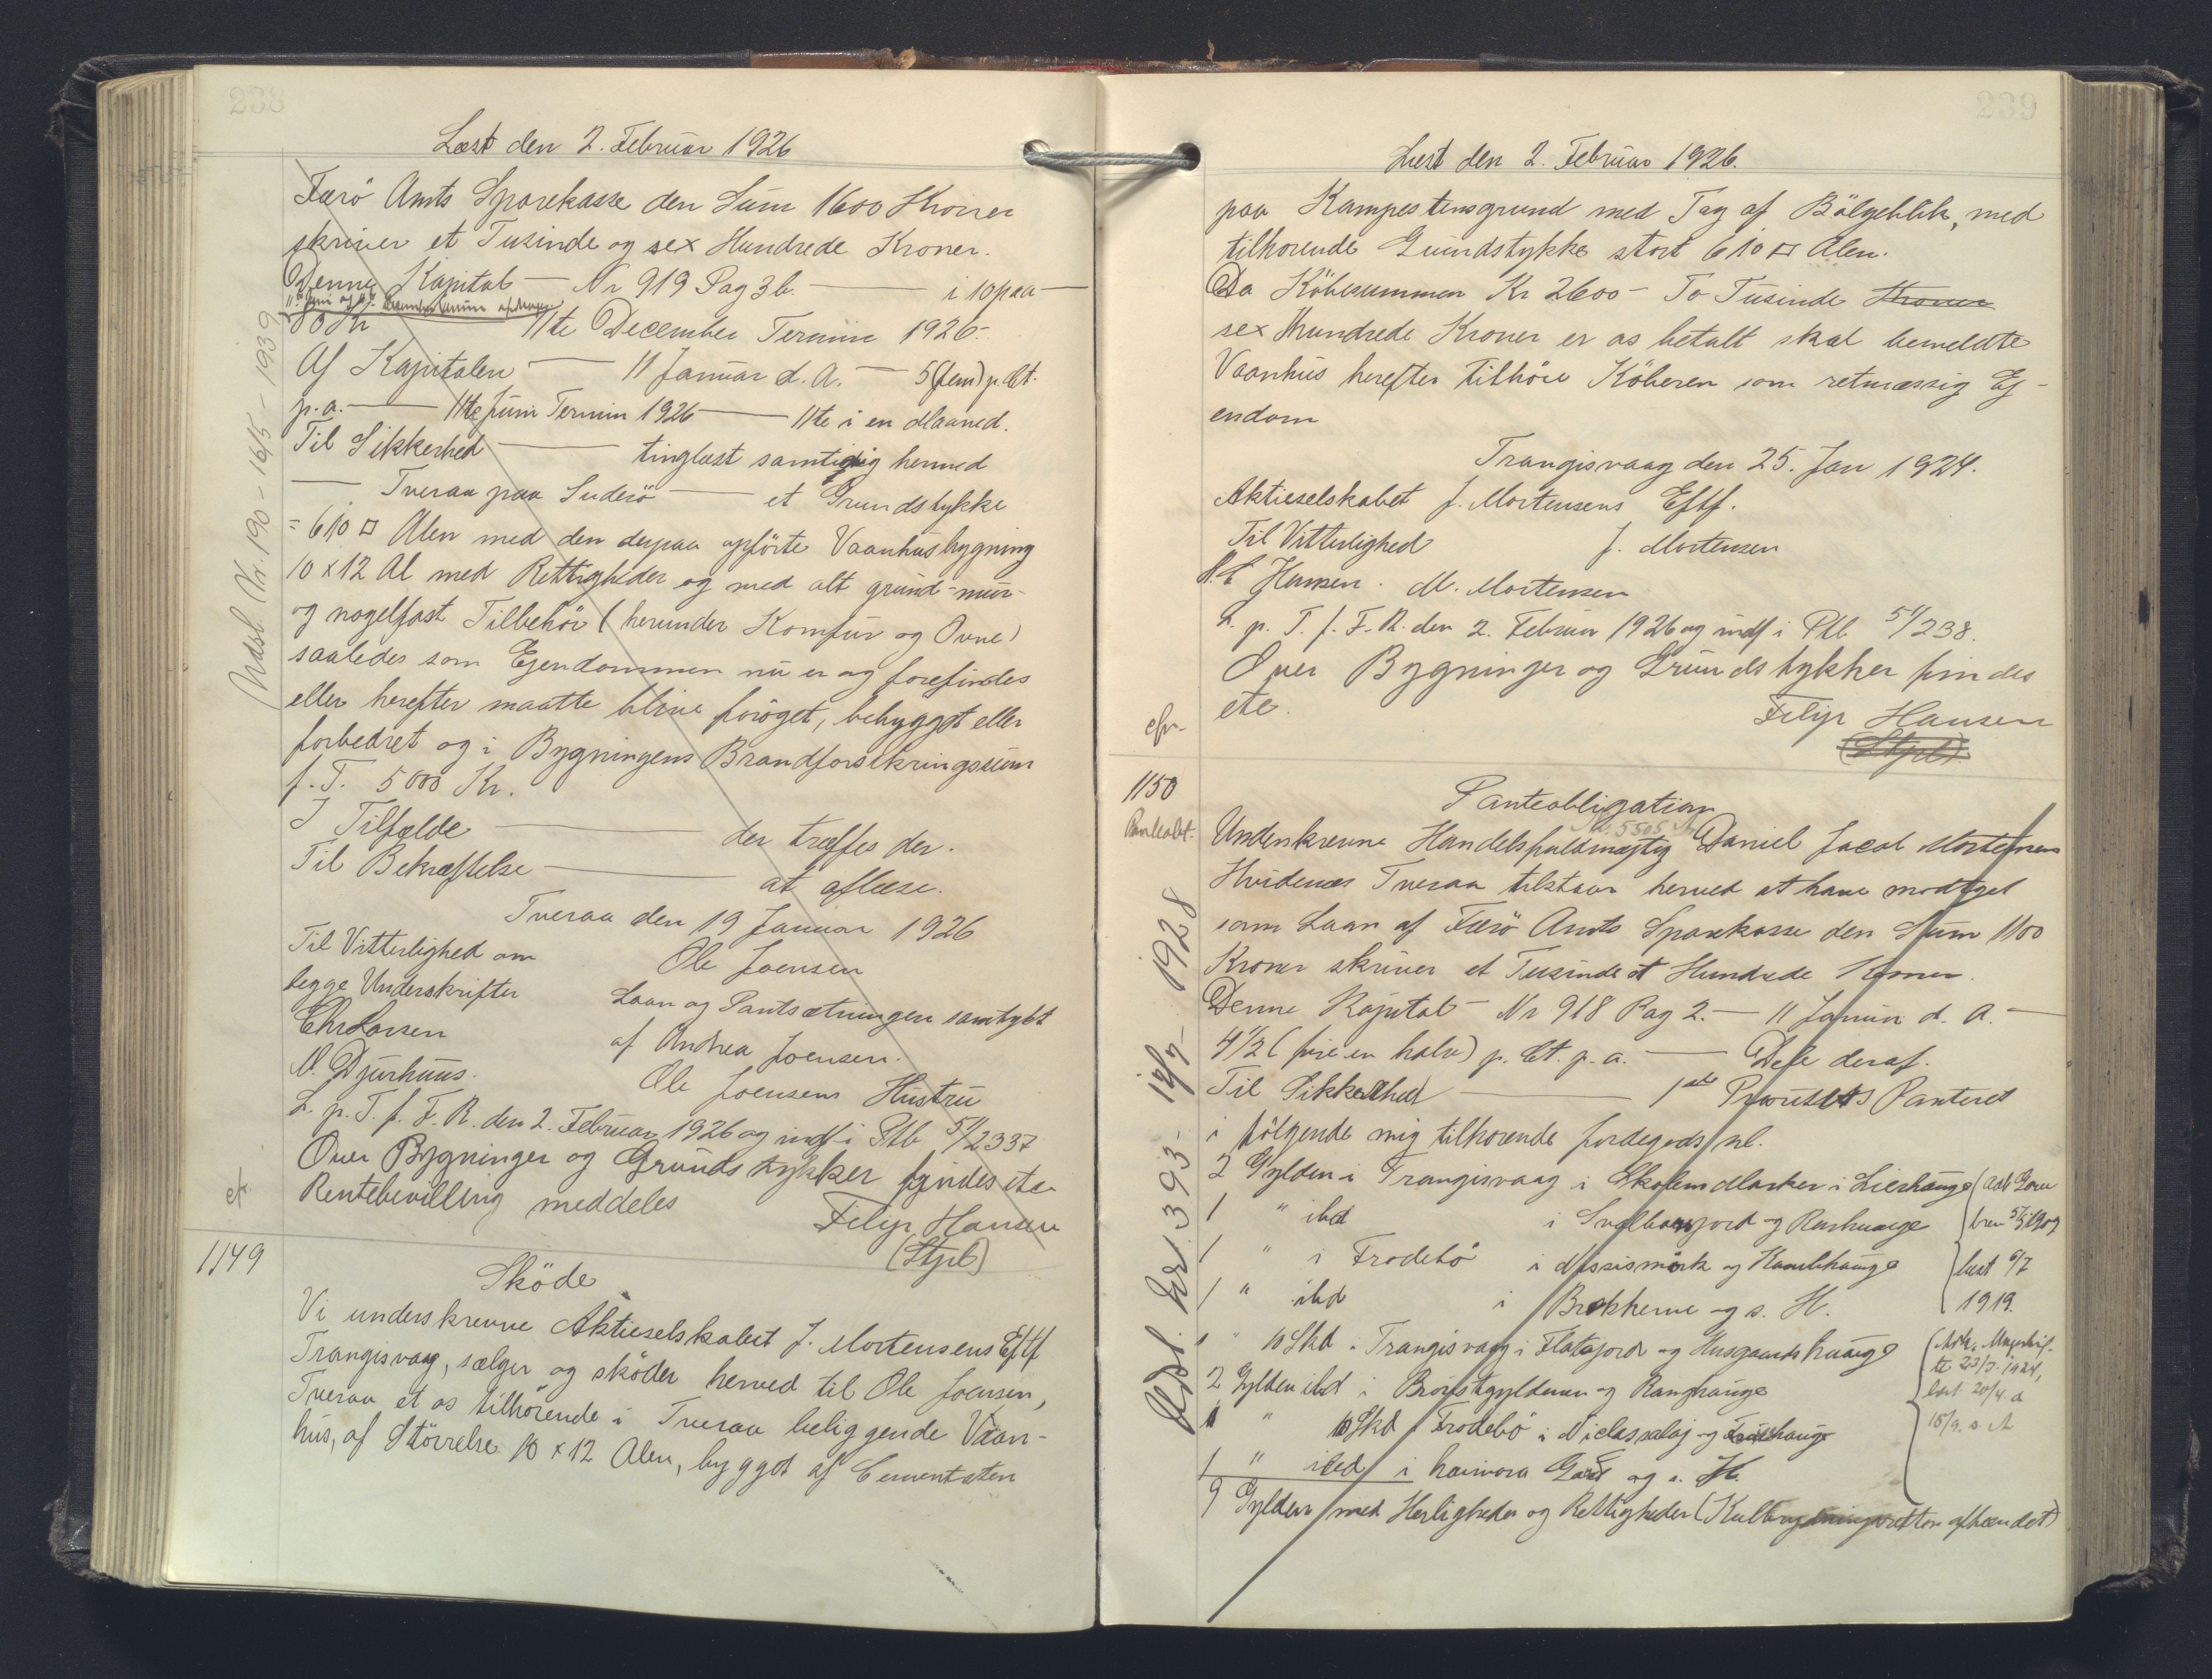 238
Læst den 2. Februar 1926
Færö Amts Sparekasse den Sum 1600 Kroner
skriver et Tusinde og sex Hundrede Kroner.
Denne Kapital — Nr 919 Pag 3b. — i 10 paa —
80 Kr 11te December Termin 1926.
Af Kapitalen — 11 Januar d. A. — 5 (fem) p. Ct.
p. a. — 11te Juni Termin 1926 — 11te i en Maaned.
Til Sikkerhed — tinglæst samtidig hermed
— Tveraa paa Suderö — et Grundstykke
= 610 □ Alen med den derpaa opförte Vaanhusbygning
10 x 12 Al med Rettigheder og med alt grund- mur-
og nagelfast Tilbehör (herunder Komfur og Ovne)
saaledes som Ejendommen nu er og forefindes
eller herefter maatte blive foröget, bebygget eller
forbedret og i Bygningens Brandforsikringssum
f. T. 5000 Kr.
I Tilfælde — der træffes der.
Til Bekræftelse — at aflæse.
Tveraa den 19 Januar 1926
Til Vitterlighed om Ole Joensen
begge Underskrifter Laan og Pantsætningen samtykt
Chr Larsen af Andrea Joensen.
N. Djurhuus. Ole Joensens Hustru
L. p. T. f. F. R. den 2. Februar 1926 og indf i Ptb 51/2337
Over Bygninger og Grundstykker findes etc
Rentebevilling meddeles
Filip Hansen
(Stpl)
Udsl. Nr. 190 - 16/5 - 1939
1149
Sköde
Vi underskrevne Aktieselskabet J. Mortensens Eftf
Trangisvaag, sælger og sköder herved til Ole Joensen,
Tveraa et os tilhörende i Tveraa beliggende Vaan-
hus, af Störrelse 10 x 12 Alen, bygget af Cementsten
239
Læst den 2. Februar 1926.
paa Kampestensgrund med Tag af Bölgeblik, med
tilhorende Grundstykke stort 610 □ Alen.
Da Köbesummen Kr 2600 - To Tusinde Kroner
sex Hundrede Kroner er os betalt skal bemeldte
Vaanhus herefter tilhöre Köberen som retmæssig Ej-
endom
Trangisvaag den 25. Jan 1924.
Aktieselskabet J. Mortensens Eftf.
Til Vitterlighed J. Mortensen
Hansen. M. Mortensen
L. p. T. f. F. R. den 2. Februar 1926 og indf i Ptb 51/238.
Over Bygninger og Grundstykker findes
etc.
Filip Hansen
(Stpl).
1150
Panteobligation
Underskrevne Handelsfuldmægtig Daniel Jacob Mortensen
Hvidenæs Tveraa tilstaar herved at have modtaget
som Laan af Færö Amts Sparekasse den Sum 1100
Kroner skriver et Tusinde et Hundrede Kroner.
Denne Kapital — Nr 918 Pag 2. — 11 Januar d. A. —
4 1/2 (fire en halv) p. Ct. p. a. — Dele deraf.
Til Sikkerhed — 1ste Prioritets Panteret
i fölgende mig tilhorende Jordegods nl.
2 Gylden i Trangisvaag i Skolemdlarker i Lierhauge
1 " ibd i og Reshauge
1 " i Frodebö i og Kamlihauge
1 " ibd i Brekkerne og s. H.
1 " 10 Skd. Trangisvaag i Flatajord og Husgaardshauge
2 Gylden ibd i og Ranghauge
1 " 10 Skd Frodebö i og
1 " ibd i Gard og s. H.
9 Gylden med Herligheder og Rettigheder ( afhændet)
læst 6/7
1919.
Udsl. Nr. 393 - 1928